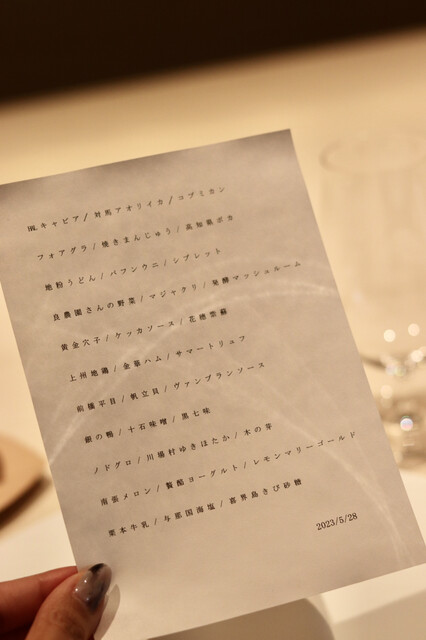 キャビア / 対馬アオリイカ / コブミカン
フォアグラ / 焼きまんじゅう / 高知県ポカ
地粉うどん / バフンウニ / シブレット
良農園さんの野菜 / マジャクリ / 発酵マッシュルーム
黄金穴子 / ケッカソース / 花穂紫蘇
上州地鶏 / 金華ハム / サマートリュフ
前橋平目 / 帆立貝 / ヴァンブランソース
銀の鴨 / 十石味噌 / 黒七味
ノドグロ / 川場村ゆきほたか / 木の芽
南張メロン / 賢酷ヨーグルト / レモンマリーゴールド
栗本牛乳 / 与那国海塩 / 喜界島きび砂糖
2023/5/28